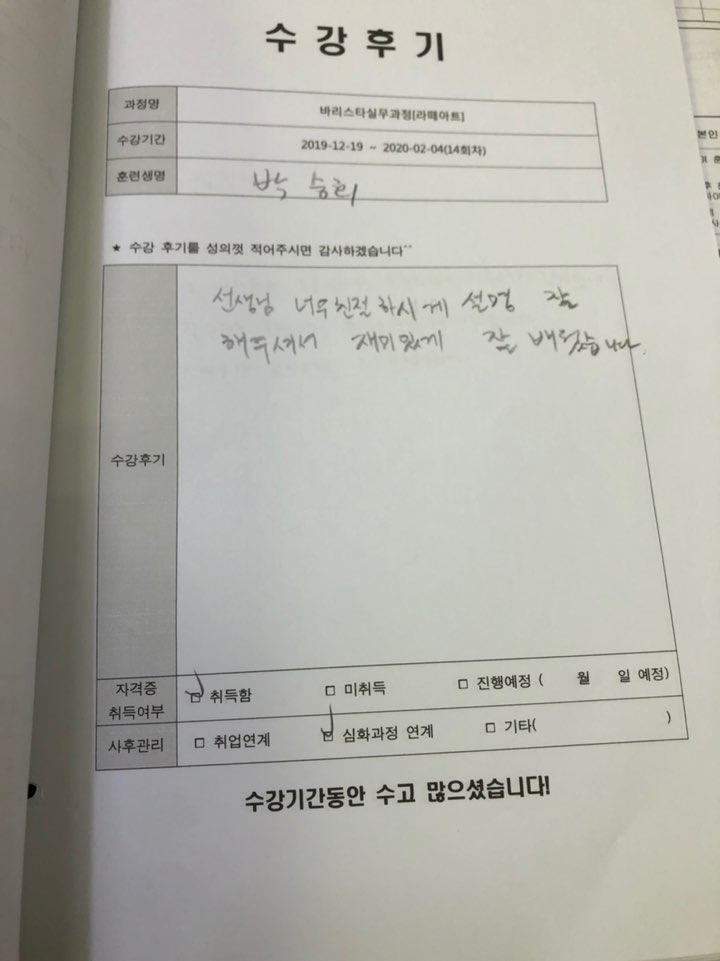 수강후기
과정명 바리스타실무과정[라떼아트]
수강기간 2019-12-19 ~ 2020-02-04(14회차)
훈련생명 박승희
★ 수강 후기를 성의껏 적어주시면 감사하겠습니다^^
선생님 너무 친절하시게 설명 잘
해주셔서 재미있게 잘 배웠습니다.
수강후기
자격증 취득여부 □ 취득함 □ 미취득 □ 진행예정 ( 월 일 예정)
사후관리 □ 취업연계 □ 심화과정 연계 □ 기타( )
수강기간동안 수고 많으셨습니다!
본인